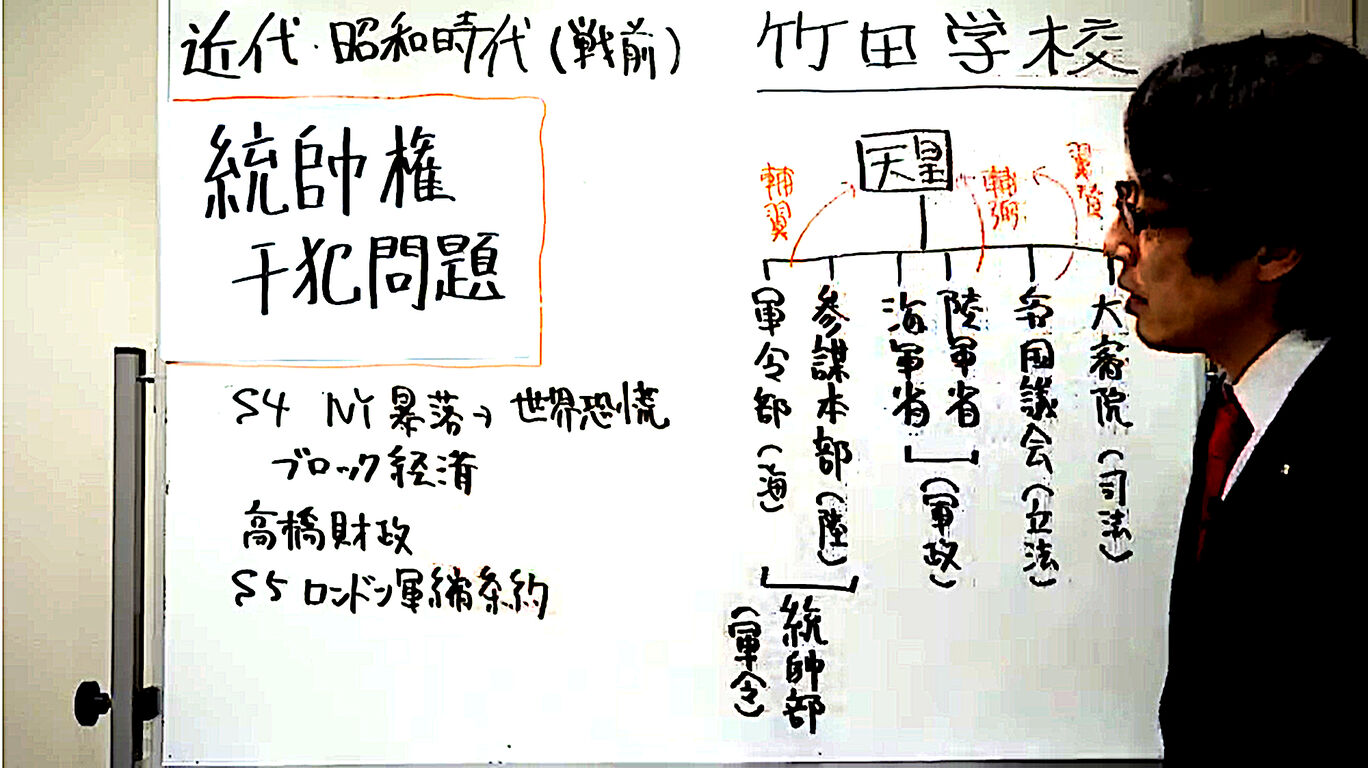 近代・昭和時代(戦前)
竹田学校
統帥権
干犯問題
S4 NY暴落→世界恐慌
ブロック経済
高橋財政
S5 ロンドン軍縮条約
天皇
輔翼
輔弼
翼賛
軍令部(海)
参謀本部(陸)
海軍省
陸軍省
帝国議会(立法)
大審院(司法)
(軍政)
統帥部
(軍令)